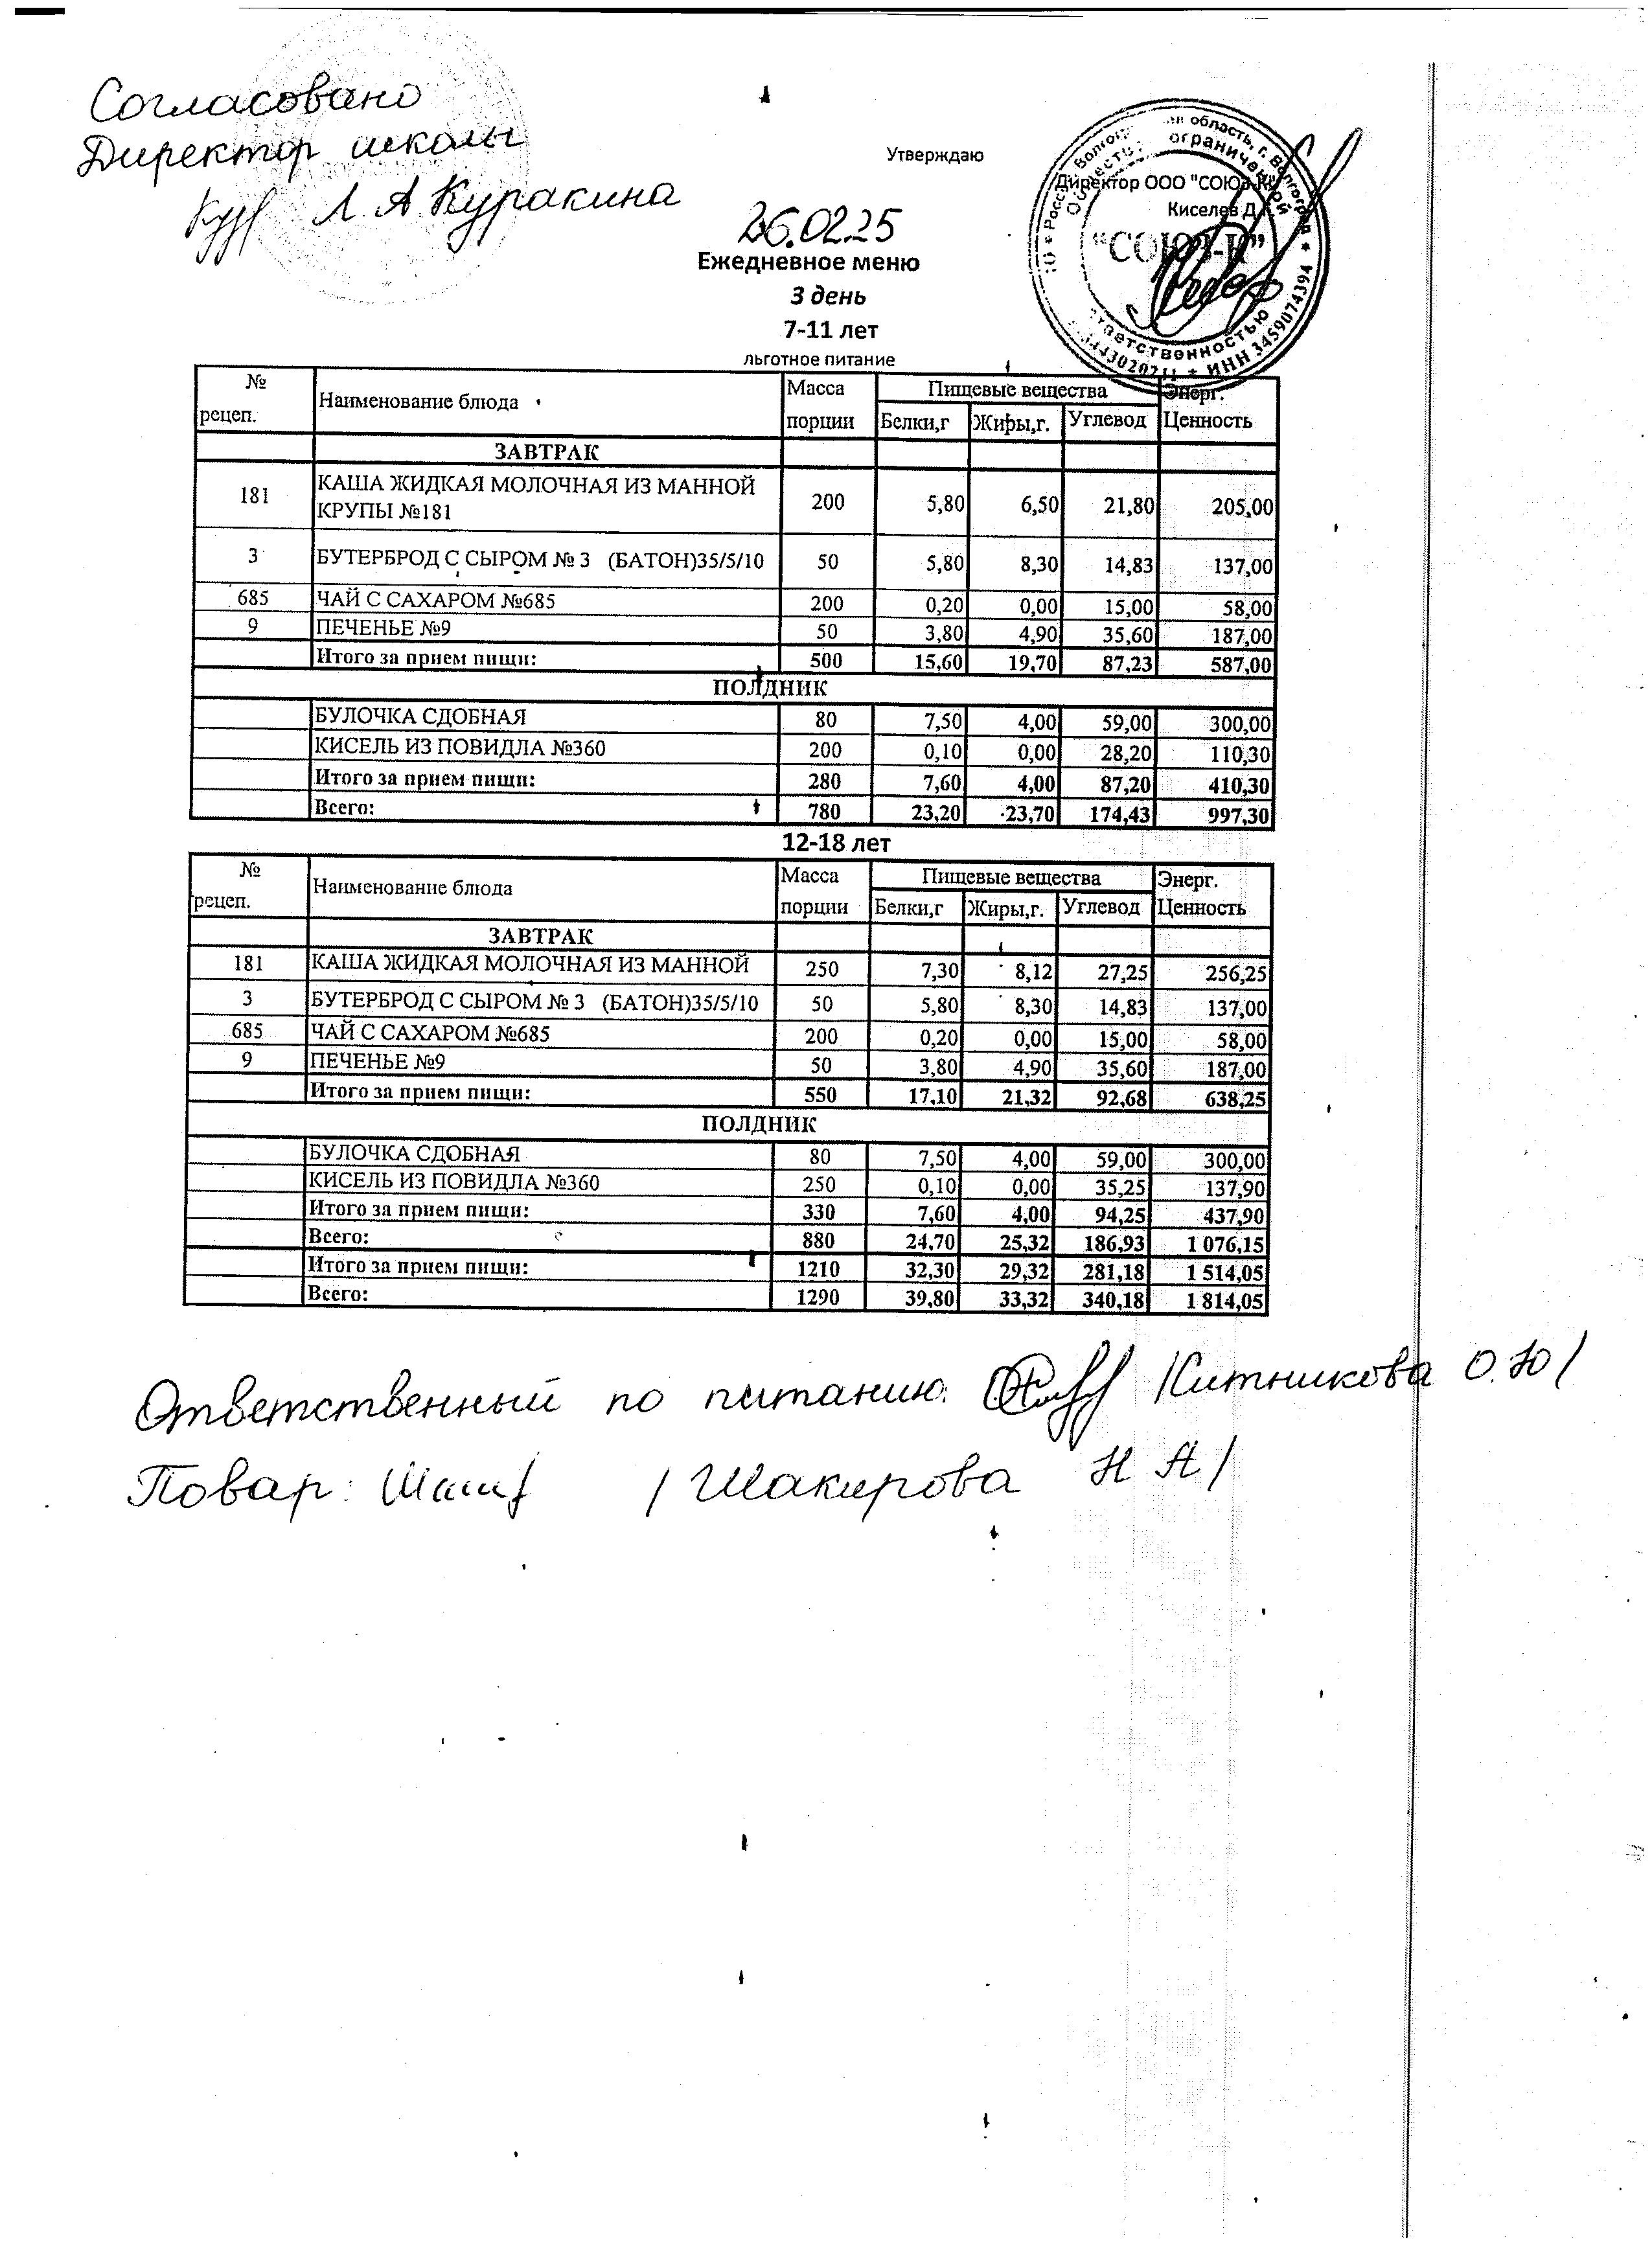 Согласовано
Директор школы
Л А Куракина
Утверждаю
Директор ООО "СОЮЗ-К"
Киселев Д
"СОЮЗ-К"
ИНН 3459074394
26.02.25
Ежедневное меню
3 день
7-11 лет
льготное питание
№ рецеп. Наименование блюда Масса порции Пищевые вещества Энерг. Ценность
Белки,г Жиры,г. Углевод
ЗАВТРАК
181 КАША ЖИДКАЯ МОЛОЧНАЯ ИЗ МАННОЙ КРУПЫ №181 200 5,80 6,50 21,80 205,00
3 БУТЕРБРОД С СЫРОМ № 3 (БАТОН)35/5/10 50 5,80 8,30 14,83 137,00
685 ЧАЙ С САХАРОМ №685 200 0,20 0,00 15,00 58,00
9 ПЕЧЕНЬЕ №9 50 3,80 4,90 35,60 187,00
Итого за прием пищи: 500 15,60 19,70 87,23 587,00
ПОЛДНИК
БУЛОЧКА СДОБНАЯ 80 7,50 4,00 59,00 300,00
КИСЕЛЬ ИЗ ПОВИДЛА №360 200 0,10 0,00 28,20 110,30
Итого за прием пищи: 280 7,60 4,00 87,20 410,30
Всего: 780 23,20 23,70 174,43 997,30
12-18 лет
№ рецеп. Наименование блюда Масса порции Пищевые вещества Энерг. Ценность
Белки,г Жиры,г. Углевод
ЗАВТРАК
181 КАША ЖИДКАЯ МОЛОЧНАЯ ИЗ МАННОЙ 250 7,30 8,12 27,25 256,25
3 БУТЕРБРОД С СЫРОМ № 3 (БАТОН)35/5/10 50 5,80 8,30 14,83 137,00
685 ЧАЙ С САХАРОМ №685 200 0,20 0,00 15,00 58,00
9 ПЕЧЕНЬЕ №9 50 3,80 4,90 35,60 187,00
Итого за прием пищи: 550 17,10 21,32 92,68 638,25
ПОЛДНИК
БУЛОЧКА СДОБНАЯ 80 7,50 4,00 59,00 300,00
КИСЕЛЬ ИЗ ПОВИДЛА №360 250 0,10 0,00 35,25 137,90
Итого за прием пищи: 330 7,60 4,00 94,25 437,90
Всего: 880 24,70 25,32 186,93 1 076,15
Итого за прием пищи: 1210 32,30 29,32 281,18 1 514,05
Всего: 1290 39,80 33,32 340,18 1 814,05
Ответственный по питанию: /Китникова О.Ю/
Повар: /Шакирова Н А/